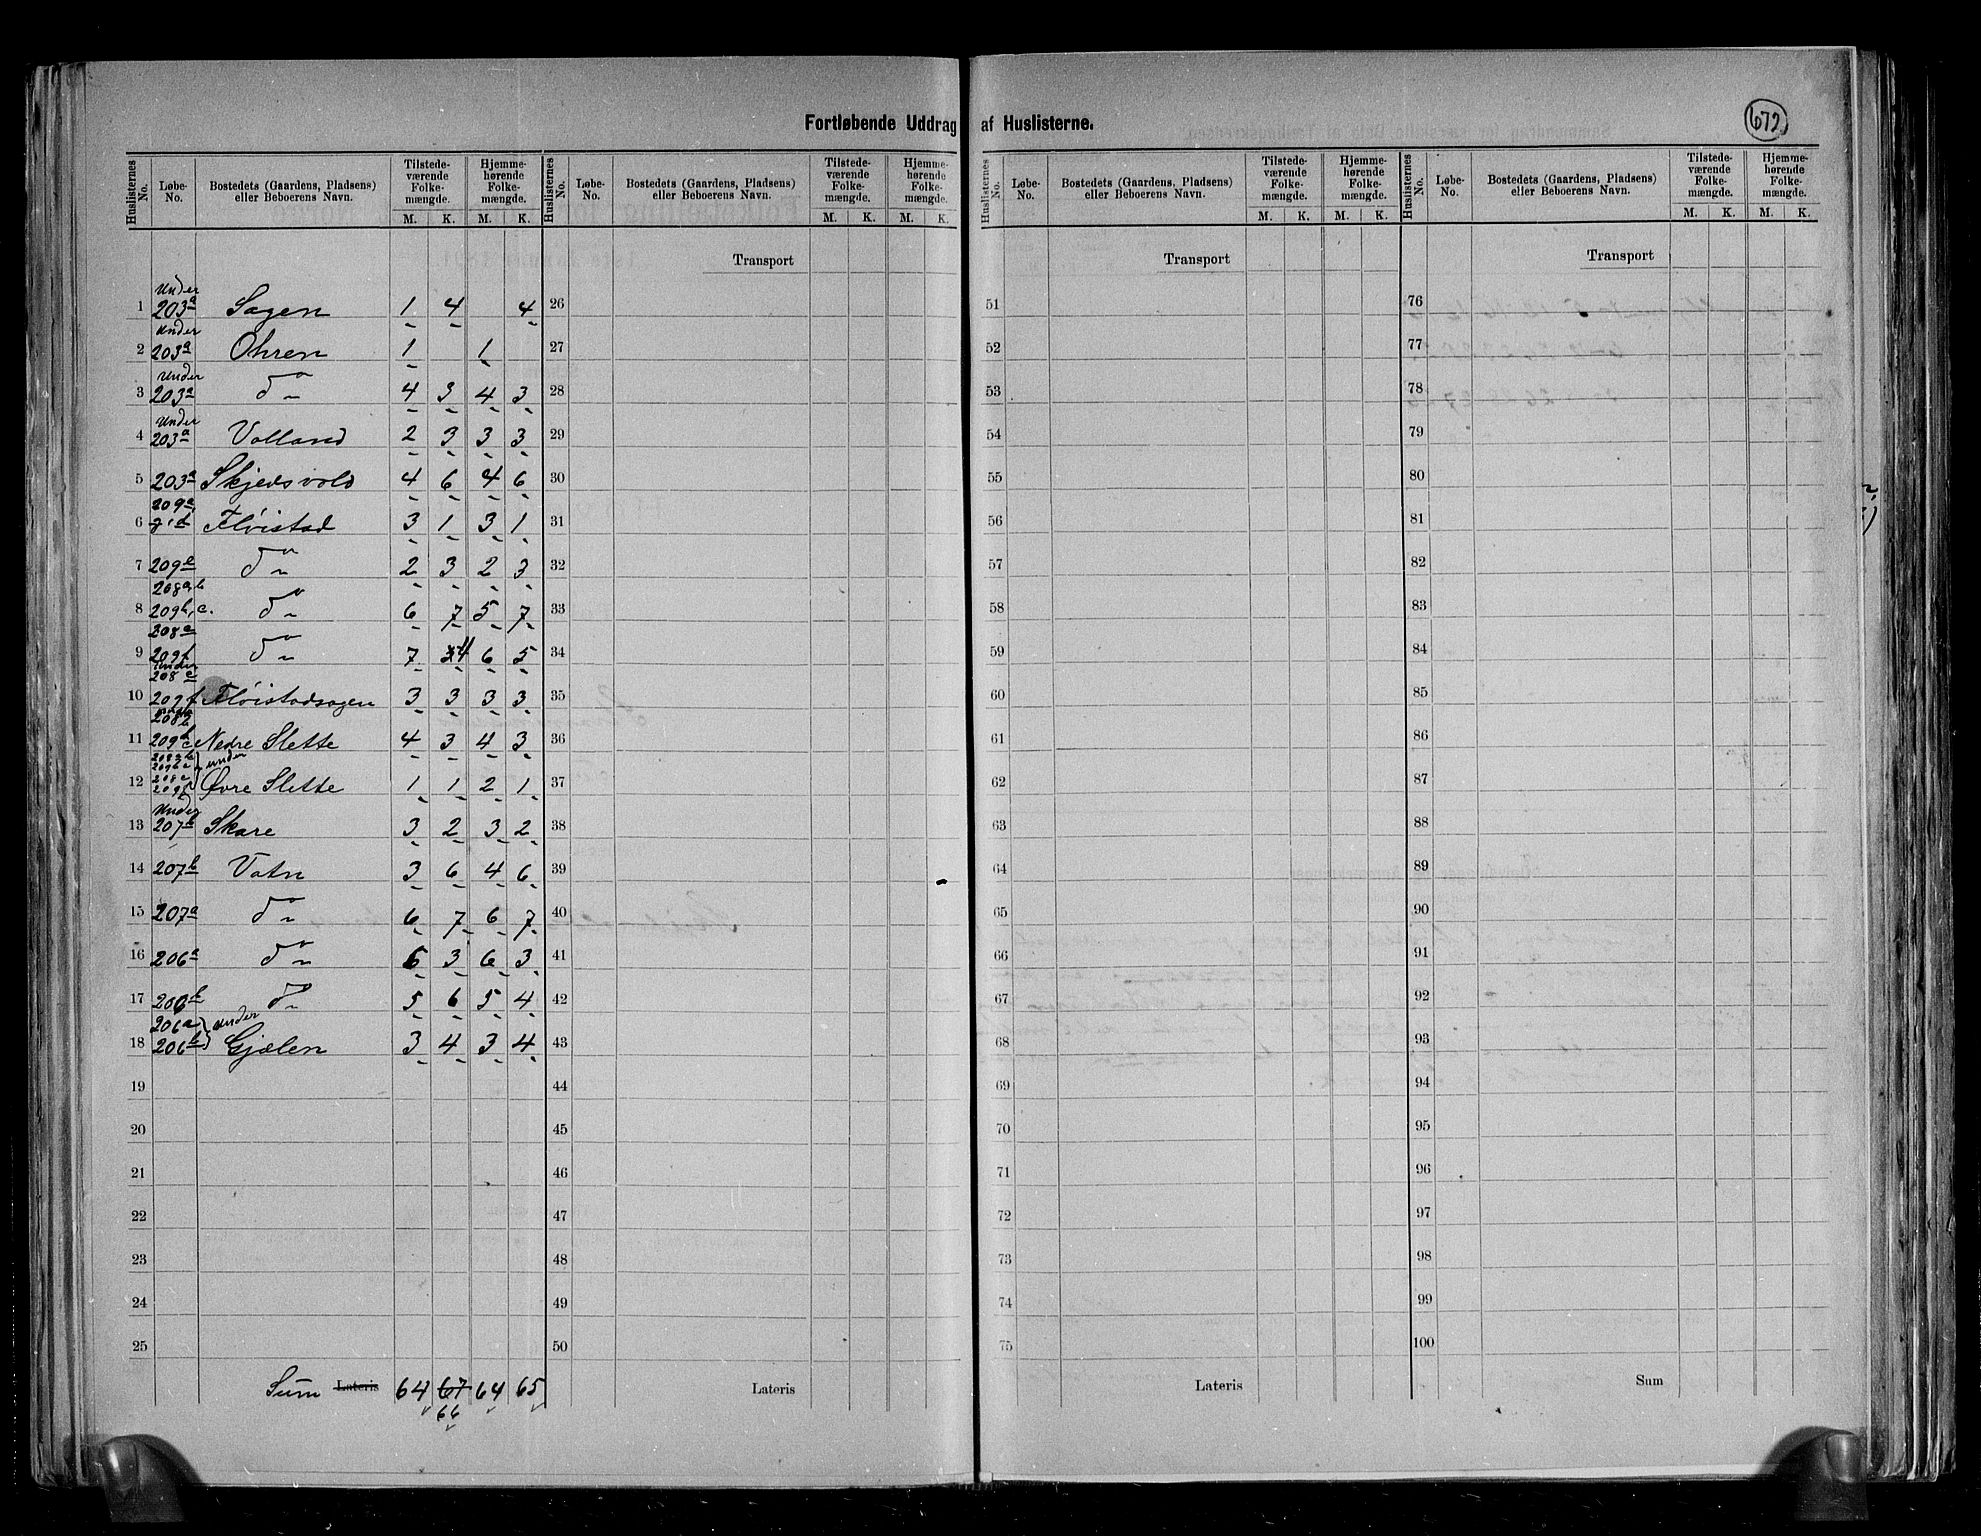 Fortløbende Uddrag af Huslisterne.
672
Huslisternes No. Løbe-No. Bostedets (Gaardens, Pladsens) eller Beboerens Navn. Tilstedeværende Folkemængde. M. K. Hjemmehørende Folkemængde. M. K.
Huslisternes No. Løbe-No. Bostedets (Gaardens, Pladsens) eller Beboerens Navn. Tilstedeværende Folkemængde. M. K. Hjemmehørende Folkemængde. M. K.
Huslisternes No. Løbe-No. Bostedets (Gaardens, Pladsens) eller Beboerens Navn. Tilstedeværende Folkemængde. M. K. Hjemmehørende Folkemængde. M. K.
Huslisternes No. Løbe-No. Bostedets (Gaardens, Pladsens) eller Beboerens Navn. Tilstedeværende Folkemængde. M. K. Hjemmehørende Folkemængde. M. K.
Transport Transport Transport
Under
1 203a Sagen 1 4 4 26 51 76
Under
2 203a Ohren 1 1 27 52 77
Under
3 203a do 4 3 4 3 28 53 78
Under
4 203a Volland 2 3 3 3 29 54 79
5 203a Skjedsvold 4 6 4 6 30 55 80
209a
6 Fløistad 3 1 3 1 31 56 81
7 209e do 2 3 2 3 32 57 82
208a,b
8 209b,c. do 6 7 5 7 33 58 83
208c
9 209f do 7 4 6 5 34 59 84
Under
208c
10 209f Fløistadsagen 3 3 3 3 35 60 85
11 209 Nedre Slette 4 3 4 3 36 61 86
under
208c
12 209f Øvre Slette 1 1 2 1 37 62 87
Under
13 207b Skare 3 2 3 2 38 63 88
14 207b Vatn 3 6 4 6 39 64 89
15 207a do 6 7 6 7 40 65 90
16 206a do 6 3 6 3 41 66 91
17 206b do 5 6 5 4 42 67 92
206a under
18 206b Gjælen 3 4 3 4 43 68 93
19 44 69 94
20 45 70 95
21 46 71 96
22 47 72 97
23 48 73 98
24 49 74 99
25 50 75 100
Sum Lateris 64 67 64 65 Lateris Lateris Sum
66